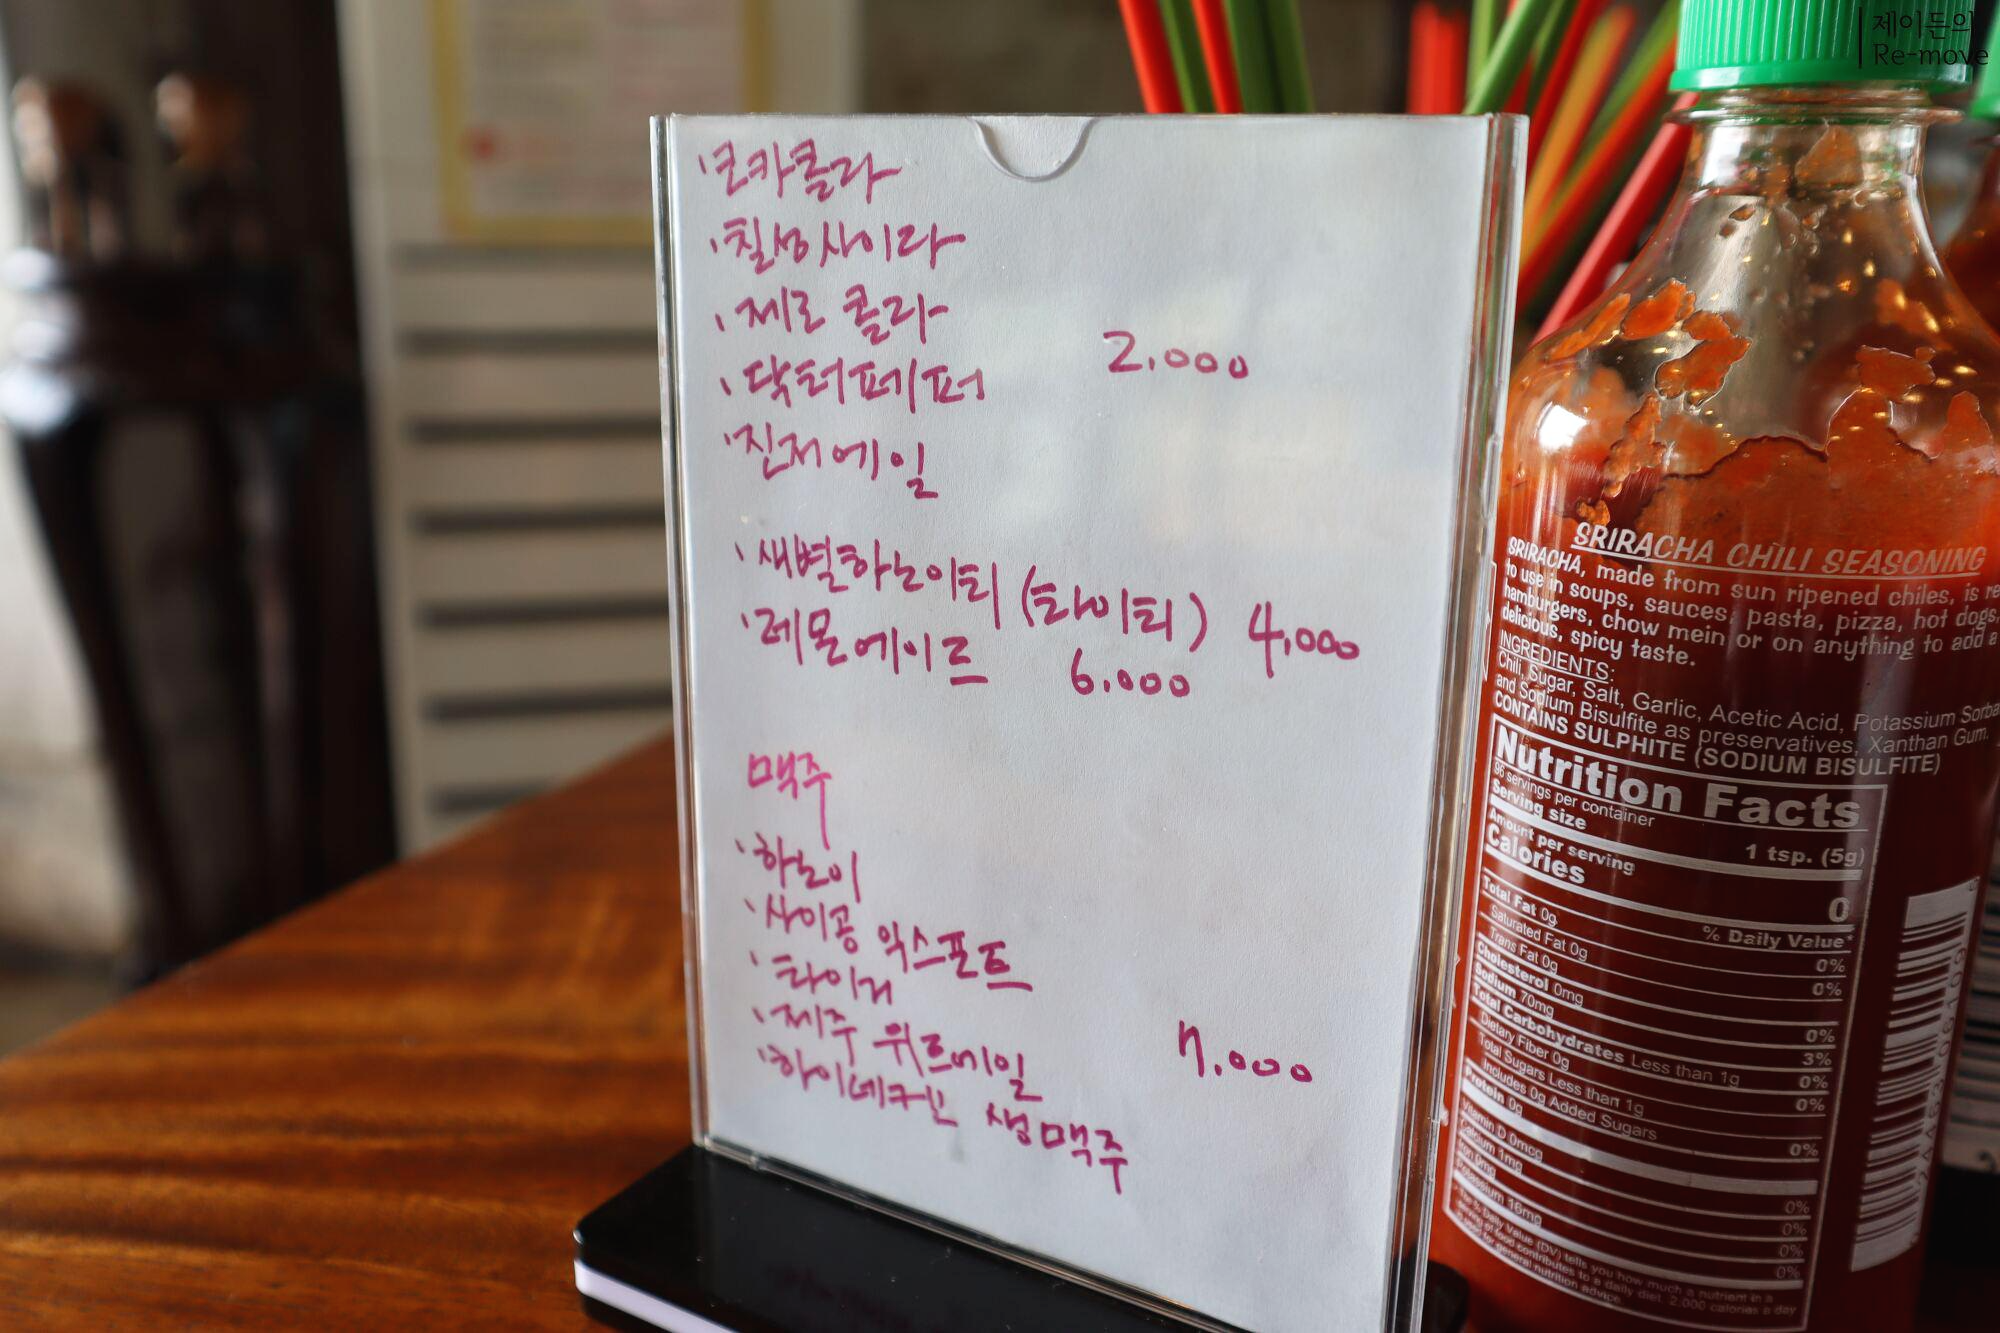 제이든의
Re-move
· 코카콜라
· 칠성사이다
· 제로 콜라
· 닥터페퍼 2.000
· 진저에일
· 새별하노이티 (타이티) 4.000
· 레몬에이드 6.000
맥주
· 하노이
· 사이공 익스포트
· 타이거
· 제주 위트에일 7.000
· 하이네켄 생맥주
SRIRACHA CHILI SEASONING
SRIRACHA, made from sun ripened chiles, is re
to use in soups, sauces, pasta, pizza, hot dogs,
hamburgers, chow mein or on anything to add a
delicious, spicy taste.
INGREDIENTS:
Chili, Sugar, Salt, Garlic, Acetic Acid, Potassium Sorba
and Sodium Bisulfite as preservatives, Xanthan Gum.
CONTAINS SULPHITE (SODIUM BISULFITE)
Nutrition Facts
96 servings per container
Serving size 1 tsp. (5g)
Amount per serving
Calories 0
% Daily Value*
Total Fat 0g 0%
Saturated Fat 0g 0%
Trans Fat 0g
Cholesterol 0mg 0%
Sodium 70mg 3%
Total Carbohydrates Less than 1g 0%
Dietary Fiber 0g 0%
Total Sugars Less than 1g
Includes 0g Added Sugars 0%
Protein 0g
Vitamin D 0mcg 0%
Calcium 1mg 0%
Iron 0mg 0%
Potassium 16mg 0%
* The % Daily Value (DV) tells you how much a nutrient in a
serving of food contributes to a daily diet. 2,000 calories a day
is used for general nutrition advice.